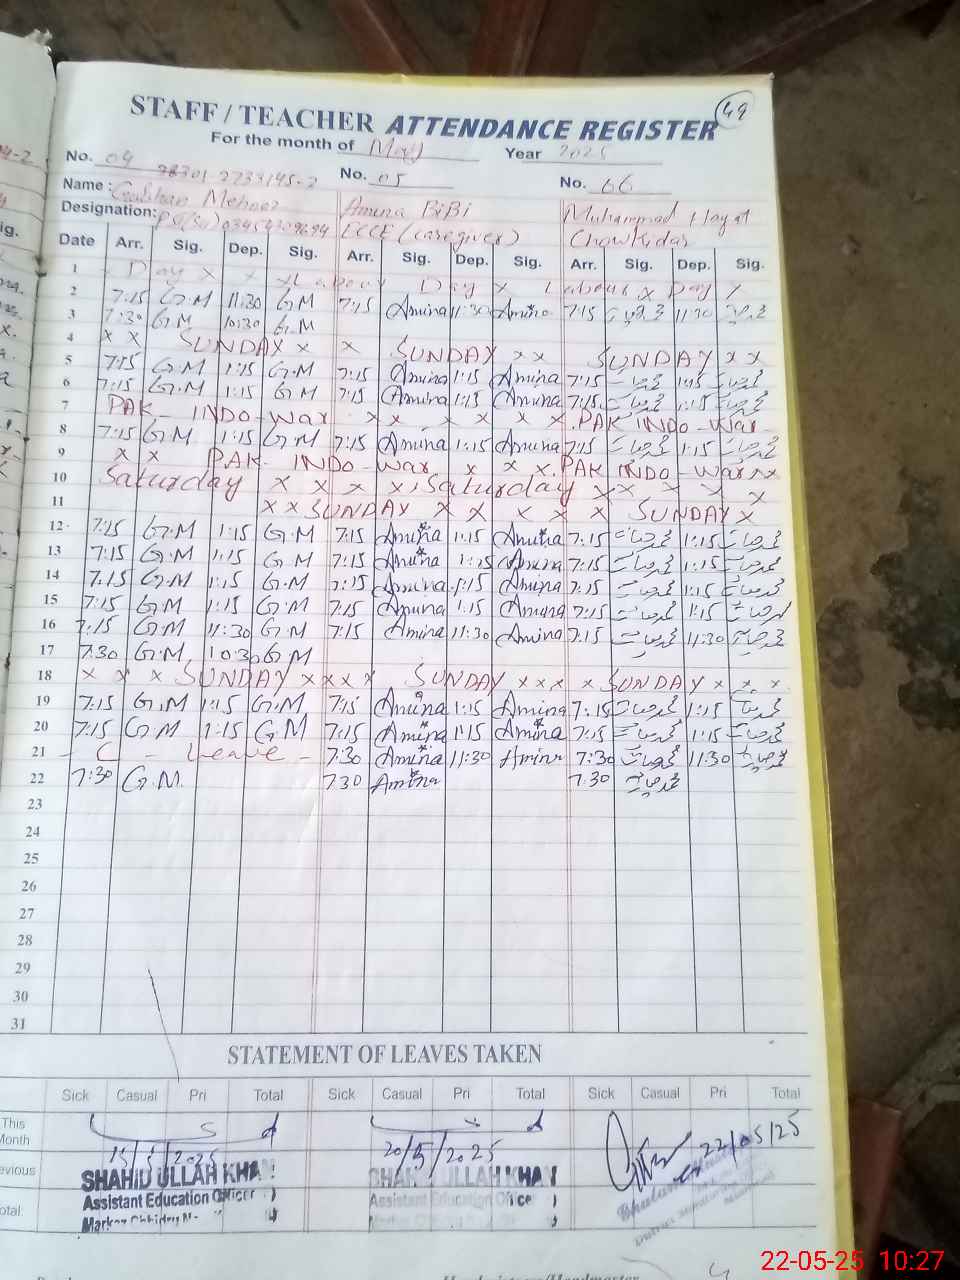 49
STAFF / TEACHER ATTENDANCE REGISTER
For the month of May Year 2025
No. 04 No. 05 No. 66
Name: Gulshan Mehnaz Amina BiBi Muhammad Hayat
Designation: ECCE (caregiver) Chowkidar
Date Arr. Sig. Dep. Sig. Arr. Sig. Dep. Sig. Arr. Sig. Dep. Sig.
1 Day x x x Labour Day x Labour x Day x
2 7:15 G.M 11:30 GM 7:15 Amina 11:30 Amina 7:15 محمد حیات 11:30 محمد حیات
3 7:30 G.M 10:30 G.M
4 x x SUNDAY x x x SUNDAY x x SUNDAY x x
5 7:15 G.M 1:15 G.M 7:15 Amina 1:15 Amina 7:15 محمد حیات 1:15 محمد حیات
6 7:15 G.M 1:15 G.M 7:15 Amina 1:15 Amina 7:15 محمد حیات 1:15 محمد حیات
7 PAK - INDO - War x x x x x x x PAK INDO - War -
8 7:15 G.M 1:15 G.M 7:15 Amina 1:15 Amina 7:15 محمد حیات 1:15 محمد حیات
9 x x PAK - INDO - War x x x. PAK INDO - War x x
10 Saturday x x x x, Saturday x x x x x
11 x x SUNDAY x x x x x SUNDAY x
12 7:15 G.M 1:15 G.M 7:15 Amina 1:15 Amina 7:15 محمد حیات 1:15 محمد حیات
13 7:15 G.M 1:15 G.M 7:15 Amina 1:15 Amina 7:15 محمد حیات 1:15 محمد حیات
14 7:15 G.M 1:15 G.M 7:15 Amina 1:15 Amina 7:15 محمد حیات 1:15 محمد حیات
15 7:15 G.M 1:15 G.M 7:15 Amina 1:15 Amina 7:15 محمد حیات 1:15 محمد حیات
16 7:15 G.M 11:30 G.M 7:15 Amina 11:30 Amina 7:15 محمد حیات 11:30 محمد حیات
17 7:30 G.M 10:30 G.M
18 x x x SUNDAY x x x x SUNDAY x x x x SUNDAY x x x
19 7:15 G.M 1:15 G.M 7:15 Amina 1:15 Amina 7:15 محمد حیات 1:15 محمد حیات
20 7:15 GM 1:15 GM 7:15 Amina 1:15 Amina 7:15 محمد حیات 1:15 محمد حیات
21 - C - Leave - 7:30 Amina 11:30 Amina 7:30 محمد حیات 11:30 محمد حیات
22 7:30 G.M. 730 Amina 7:30 محمد حیات
23
24
25
26
27
28
29
30
31
STATEMENT OF LEAVES TAKEN
Sick Casual Pri Total Sick Casual Pri Total Sick Casual Pri Total
This Month
evious
otal
15/5/2025 20/5/2025 22/05/25
SHAHID ULLAH KHAN SHAHID ULLAH KHAN
Assistant Education Officer Assistant Education Officer
Markaz
22-05-25 10:27